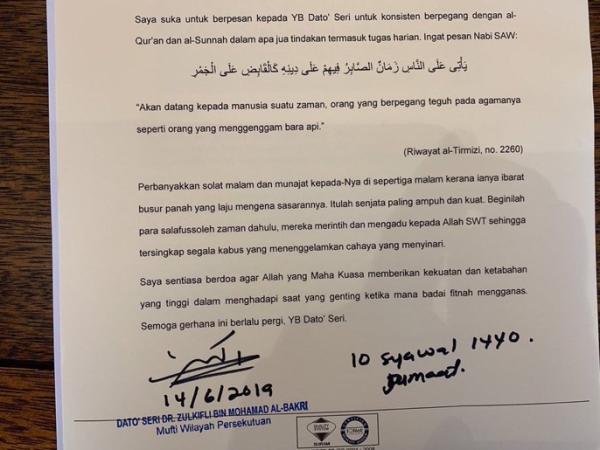 Saya suka untuk berpesan kepada YB Dato' Seri untuk konsisten berpegang dengan al-
Qur'an dan al-Sunnah dalam apa jua tindakan termasuk tugas harian. Ingat pesan Nabi SAW:
يَأْتِي عَلَى النَّاسِ زَمَانٌ الصَّابِرُ فِيهِمْ عَلَى دِينِهِ كَالْقَابِضِ عَلَى الْجَمْرِ
"Akan datang kepada manusia suatu zaman, orang yang berpegang teguh pada agamanya
seperti orang yang menggenggam bara api."
(Riwayat al-Tirmizi, no. 2260)
Perbanyakkan solat malam dan munajat kepada-Nya di sepertiga malam kerana ianya ibarat
busur panah yang laju mengena sasarannya. Itulah senjata paling ampuh dan kuat. Beginilah
para salafussoleh zaman dahulu, mereka merintih dan mengadu kepada Allah SWT sehingga
tersingkap segala kabus yang menenggelamkan cahaya yang menyinari.
Saya sentiasa berdoa agar Allah yang Maha Kuasa memberikan kekuatan dan ketabahan
yang tinggi dalam menghadapi saat yang genting ketika mana badai fitnah mengganas.
Semoga gerhana ini berlalu pergi, YB Dato' Seri.
14/6/2019
10 Syawal 1440.
Jumaat.
DATO' SERI DR. ZULKIFLI BIN MOHAMAD AL-BAKRI
Mufti Wilayah Persekutuan